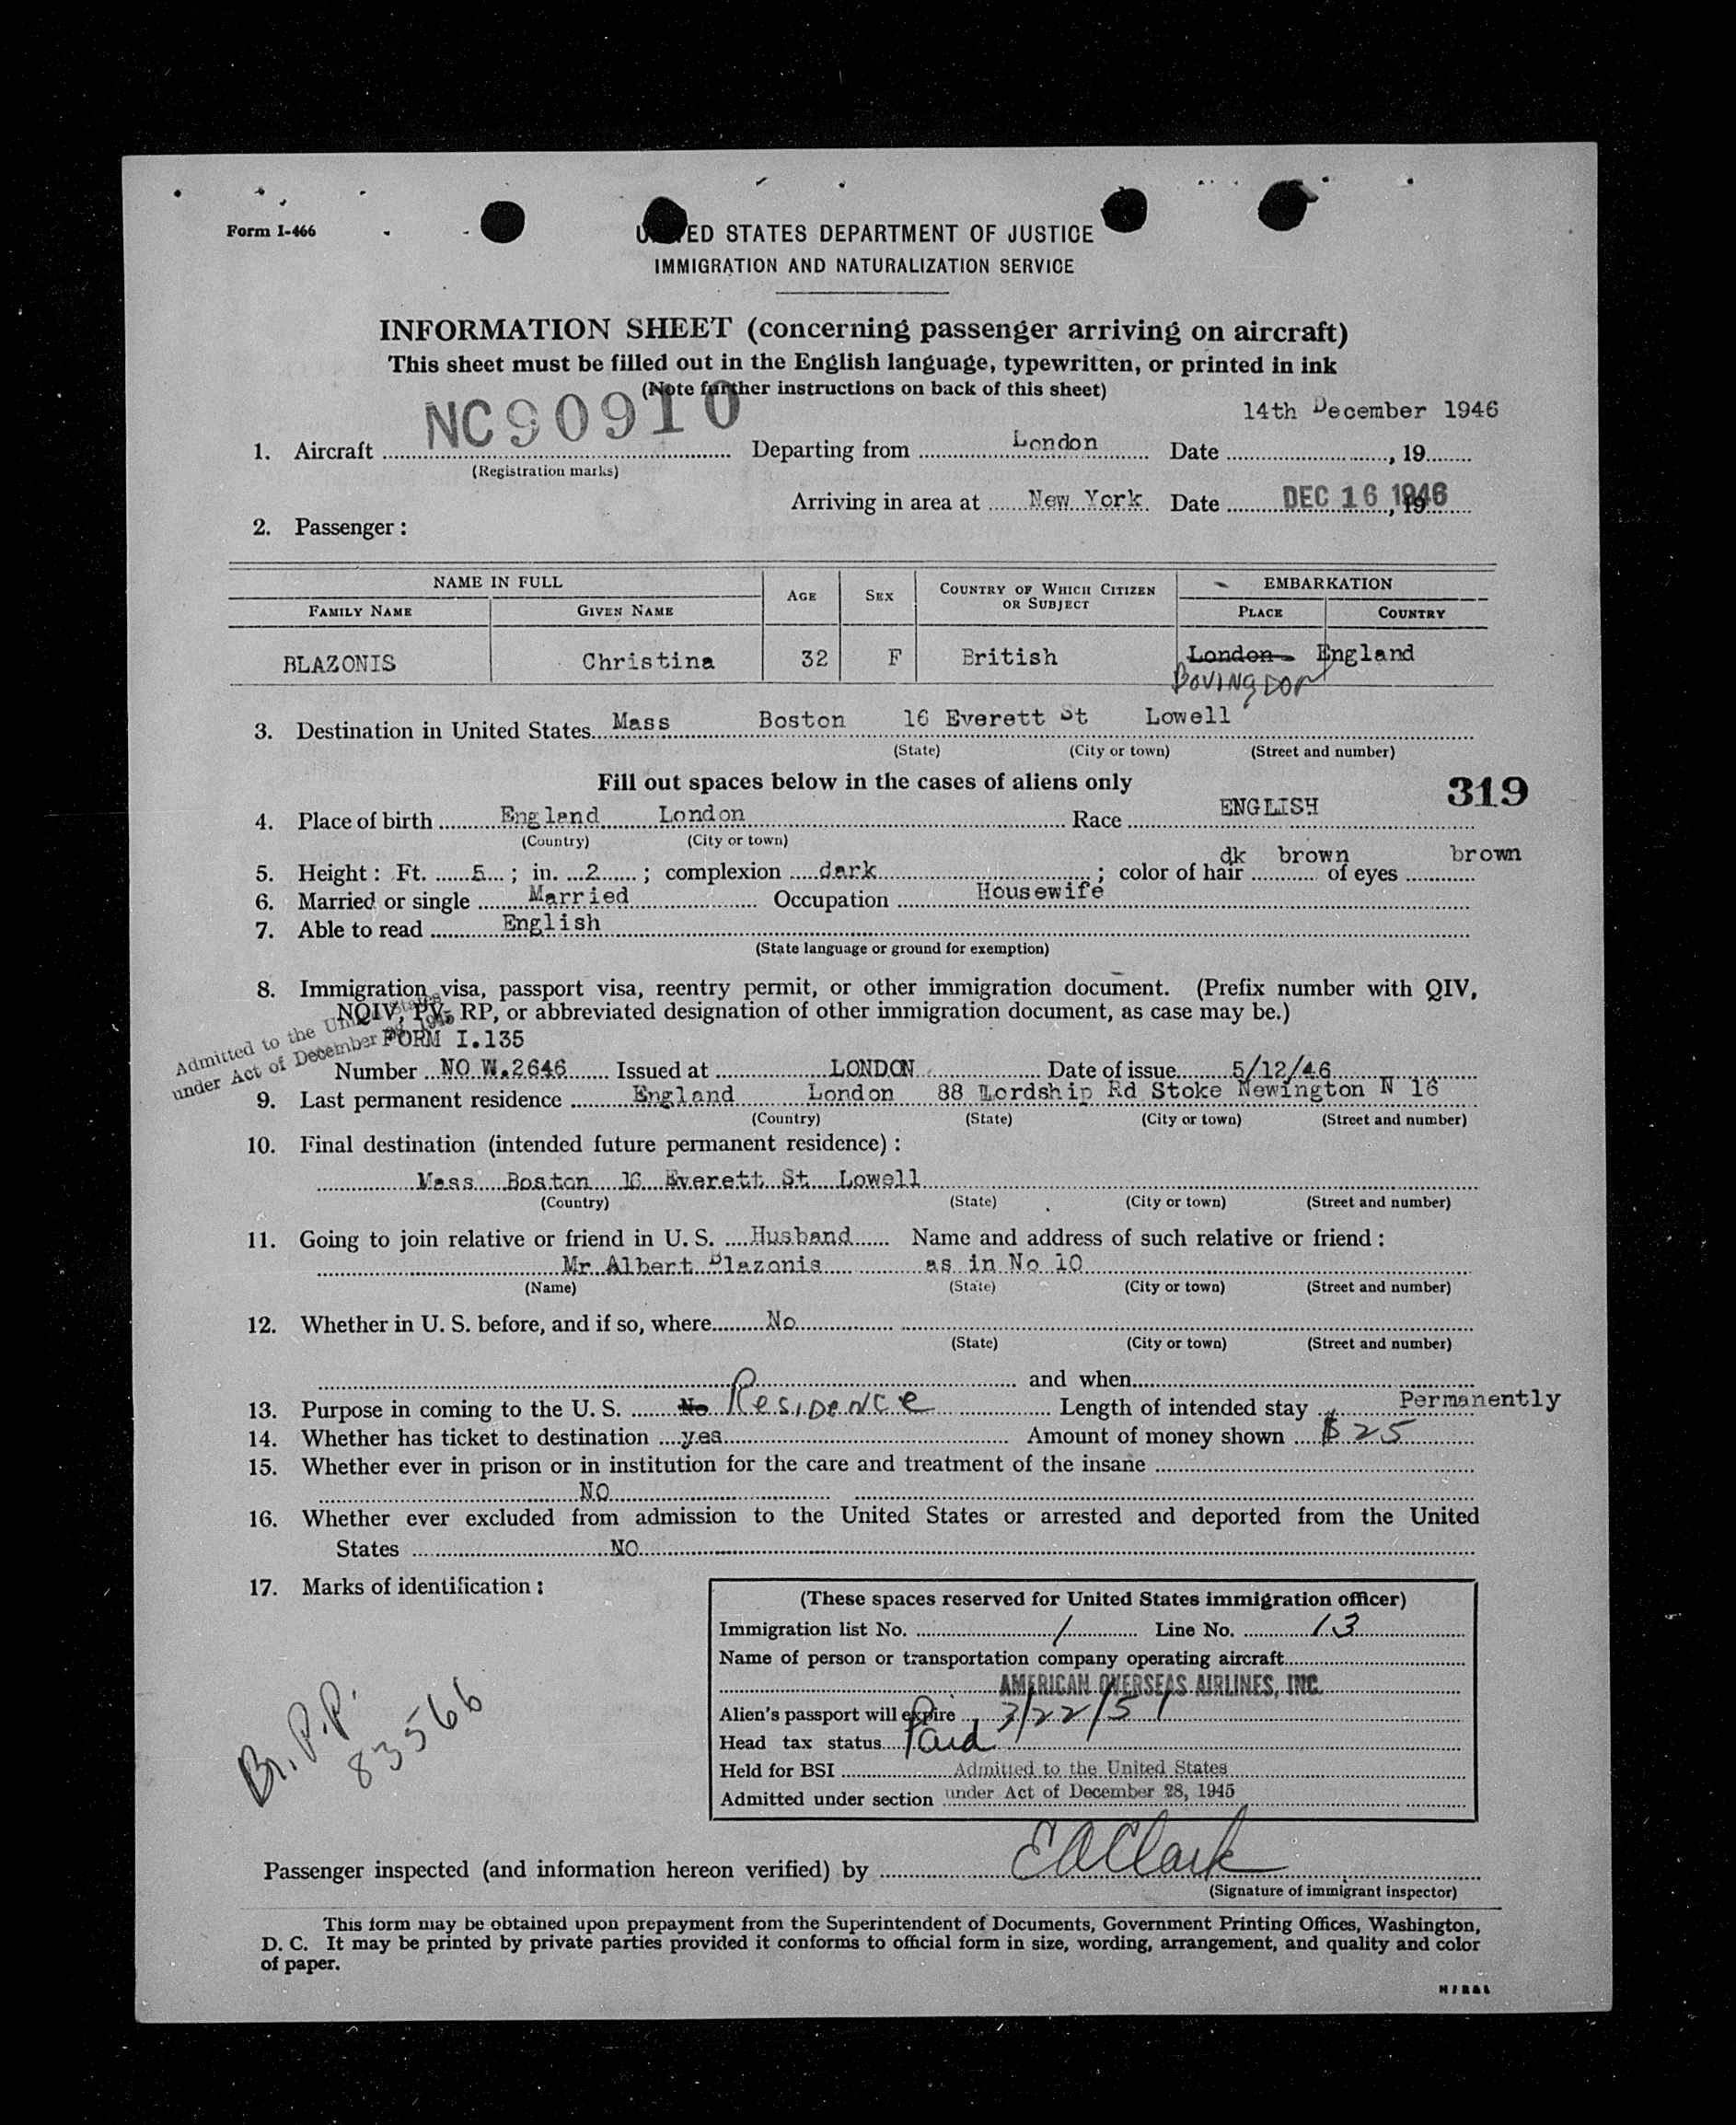 Form I-466
UNITED STATES DEPARTMENT OF JUSTICE
IMMIGRATION AND NATURALIZATION SERVICE
INFORMATION SHEET (concerning passenger arriving on aircraft)
This sheet must be filled out in the English language, typewritten, or printed in ink
(Note further instructions on back of this sheet)
14th December 1946
1. Aircraft NC90910 Departing from London Date , 19
(Registration marks)
Arriving in area at New York Date DEC 16 1946 , 19
2. Passenger:
NAME IN FULL AGE SEX COUNTRY OF WHICH CITIZEN OR SUBJECT EMBARKATION
FAMILY NAME GIVEN NAME PLACE COUNTRY
BLAZONIS Christina 32 F British London England
BOVINGDON
3. Destination in United States Mass Boston 16 Everett St Lowell
(State) (City or town) (Street and number)
Fill out spaces below in the cases of aliens only
319
4. Place of birth England London Race ENGLISH
(Country) (City or town)
5. Height: Ft. 5; in. 2; complexion dark; color of hair dk brown of eyes brown
6. Married or single Married Occupation Housewife
7. Able to read English
(State language or ground for exemption)
8. Immigration visa, passport visa, reentry permit, or other immigration document. (Prefix number with QIV,
NQIV, PV, RP, or abbreviated designation of other immigration document, as case may be.)
Admitted to the United States
under Act of December 28, 1945
FORM I.135
Number NO W.2646 Issued at LONDON Date of issue 5/12/46
9. Last permanent residence England London 88 Lordship Rd Stoke Newington N 16
(Country) (State) (City or town) (Street and number)
10. Final destination (intended future permanent residence):
Mass Boston 16 Everett St Lowell
(Country) (State) (City or town) (Street and number)
11. Going to join relative or friend in U. S. Husband Name and address of such relative or friend:
Mr Albert Blazonis as in No 10
(Name) (State) (City or town) (Street and number)
12. Whether in U. S. before, and if so, where No
(State) (City or town) (Street and number)
and when
13. Purpose in coming to the U. S. No Residence Length of intended stay Permanently
14. Whether has ticket to destination yes Amount of money shown $25
15. Whether ever in prison or in institution for the care and treatment of the insane
NO
16. Whether ever excluded from admission to the United States or arrested and deported from the United
States NO
17. Marks of identification:
Br. P.P.
83566
(These spaces reserved for United States immigration officer)
Immigration list No. 1 Line No. 13
Name of person or transportation company operating aircraft
AMERICAN OVERSEAS AIRLINES, INC.
Alien's passport will expire 3/22/51
Head tax status Paid
Held for BSI Admitted to the United States
Admitted under section under Act of December 28, 1945
Passenger inspected (and information hereon verified) by EAClark
(Signature of immigrant inspector)
This form may be obtained upon prepayment from the Superintendent of Documents, Government Printing Offices, Washington,
D. C. It may be printed by private parties provided it conforms to official form in size, wording, arrangement, and quality and color
of paper.